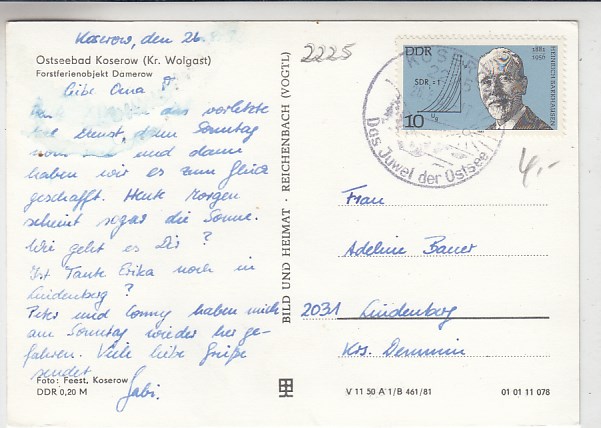 Koserow, den 26.
Ostseebad Koserow (Kr. Wolgast)
Forstferienobjekt Damerow
Liebe Oma!
das vorletzte
Dienst, dann Sonntag
und dann
haben wir es zum Glück
geschafft. Heute Morgen
scheint sogar die Sonne.
Wie geht es Dir?
Ist Tante Erika noch in
Lindenberg?
Peter und Conny haben mich
am Sonntag wieder herge-
fahren. Viele liebe Grüße
sendet
Gabi.
Foto: Feest, Koserow
DDR 0,20 M
BILD UND HEIMAT · REICHENBACH (VOGTL)
2225
DDR
1881
1950
HEINRICH BARKHAUSEN
10
KOSEROW
Das Juwel der Ostsee
4,-
Frau
Adeline Bauer
2031 Lindenberg
Krs. Demmin
V 11 50 A 1/B 461/81
01 01 11 078